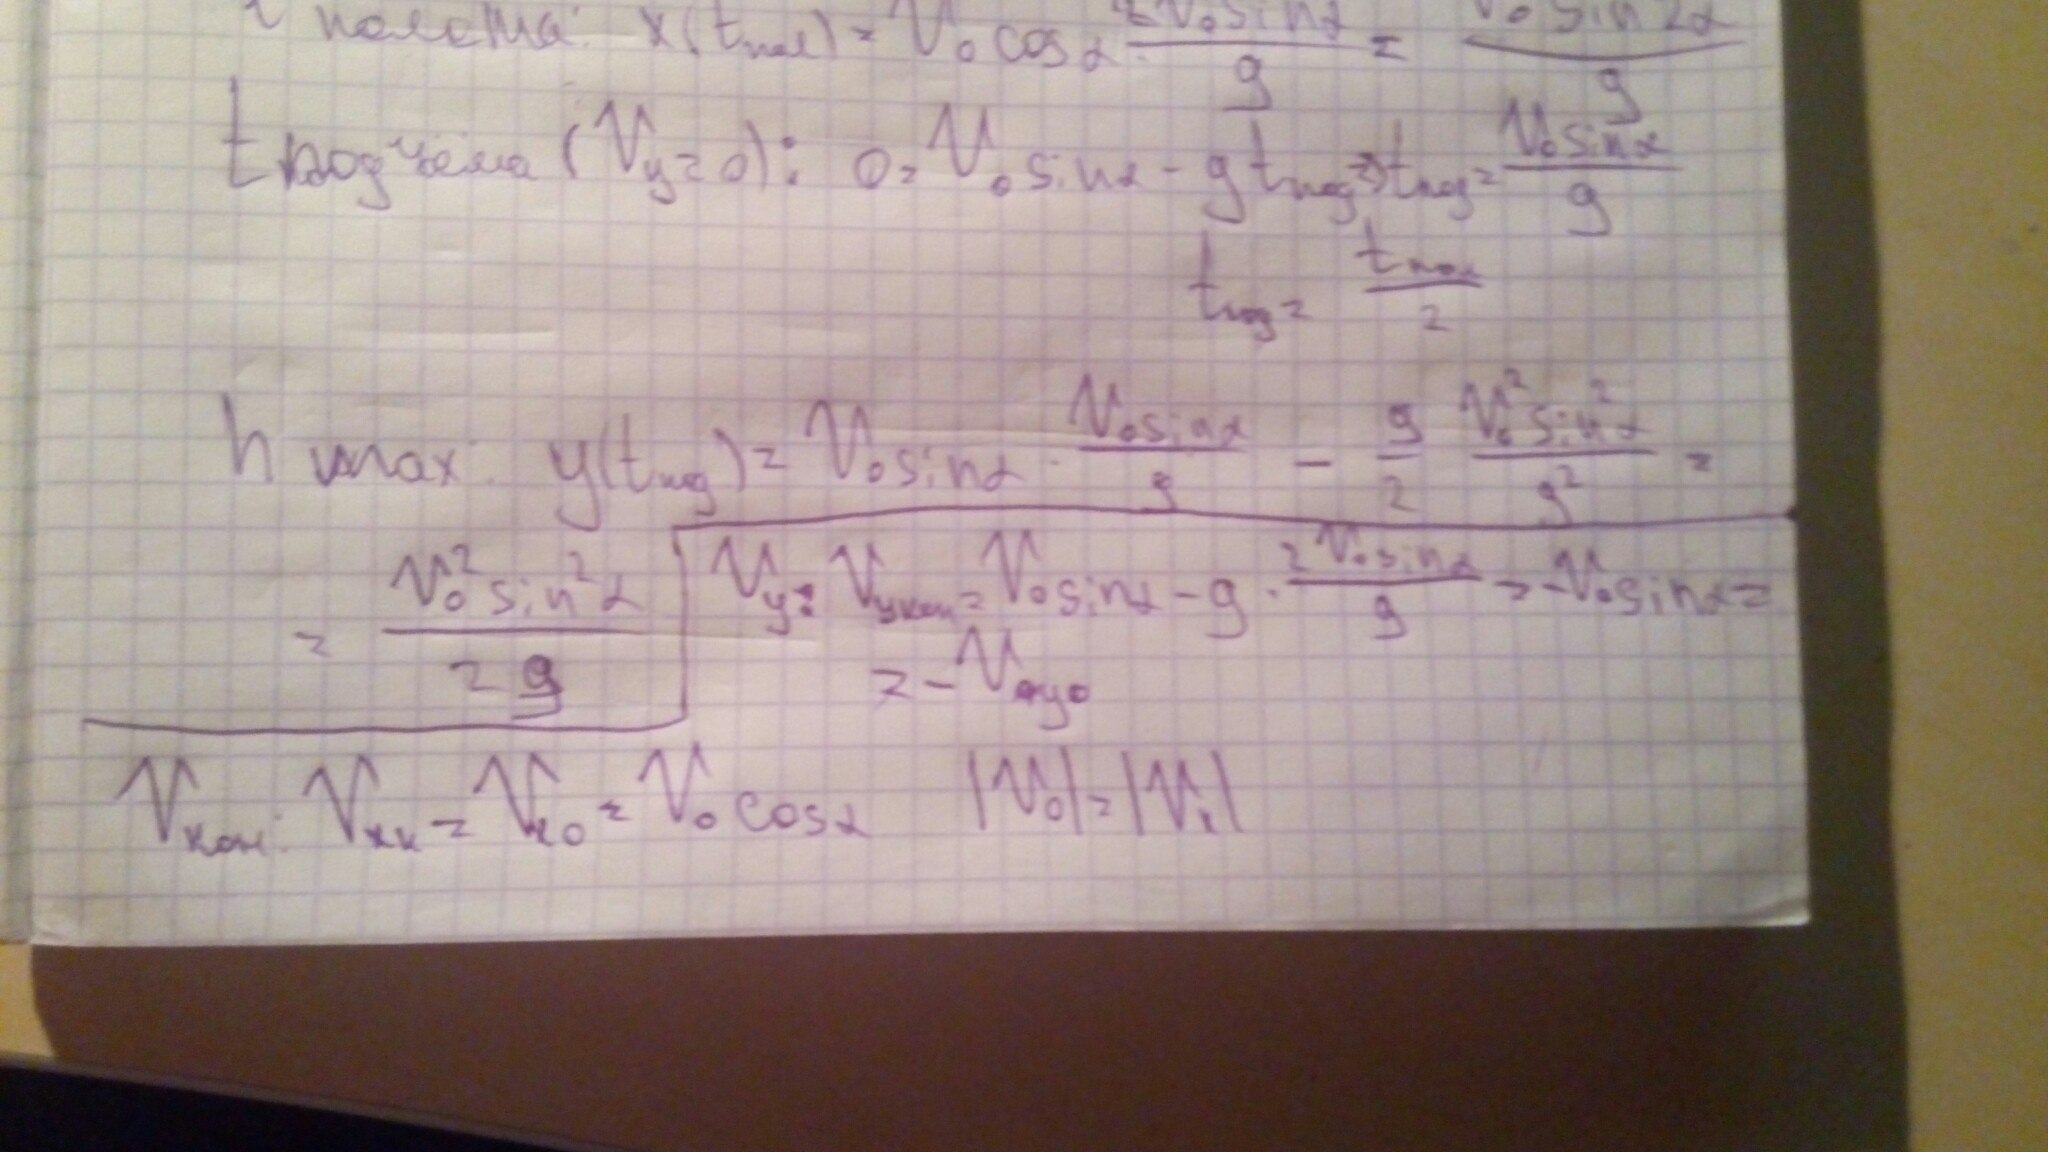 полёта: x(tпол) = V₀ cosα · 2V₀sinα/g = V₀² sin2α/g
tподъёма (Vy=0): 0 = V₀ sinα - g tпод ⇒ tпод = V₀sinα/g
tпод = tпол/2
h max: y(tпод) = V₀ sinα · V₀sinα/g - g/2 V₀²sin²α/g² =
= V₀²sin²α/2g
Vy: Vyкон = V₀sinα - g · 2V₀sinα/g = -V₀sinα =
= -Vy₀
Vкон: Vxк = Vx0 = V₀ cosα |V₀| = |Vк|